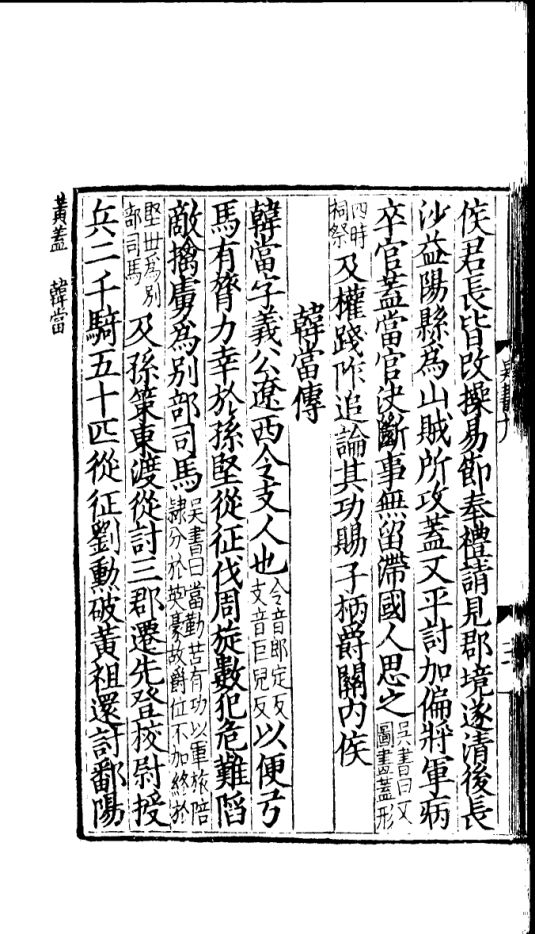 侯君長皆改操易節奉禮請見郡境遂清後長
沙益陽縣為山賊所攻蓋又平討加偏將軍病
卒官蓋當官決斷事無留滯國人思之吳書曰又圖畫蓋形
四時祠祭及權踐阼追論其功賜子柄爵關內侯
韓當傳
韓當字義公遼西令支人也令音郎定反支音巨兒反以便弓
馬有膂力幸於孫堅從征伐周旋數犯危難陷
敵擒虜為別部司馬吳書曰當勤苦有功以軍旅陪隸分於英豪故爵位不加終於
堅世為別部司馬及孫策東渡從討三郡遷先登校尉授
兵二千騎五十匹從征劉勳破黃祖還討鄱陽
黃蓋 韓當